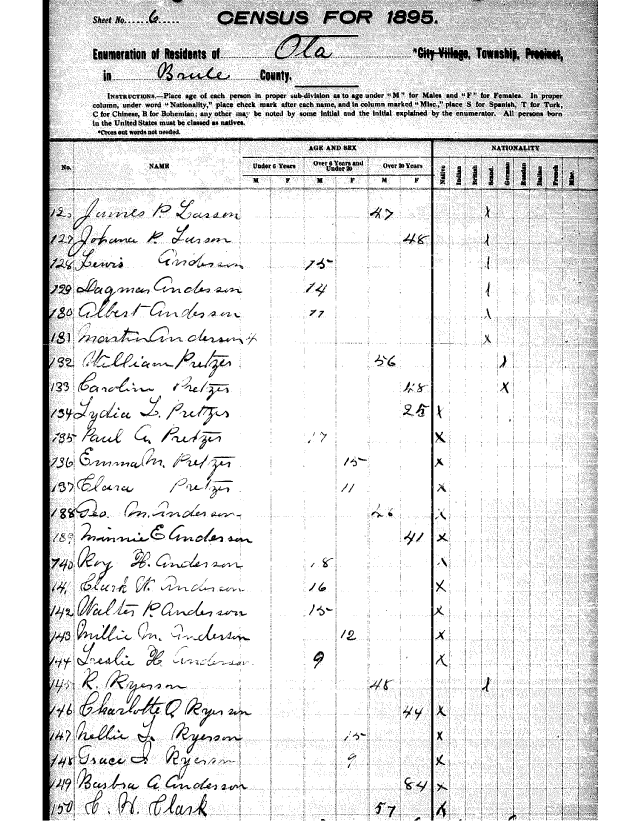 Sheet No......6.....
CENSUS FOR 1895.
Enumeration of Residents of Ota *City Village, Township, Precinct,
in Brule County.
INSTRUCTIONS.—Place age of each person in proper sub-division as to age under "M" for Males and "F" for Females. In proper
column, under word "Nationality," place check mark after each name, and in column marked "Misc," place S for Spanish, T for Turk,
C for Chinese, B for Bohemian; any other may be noted by some initial and the initial explained by the enumerator. All persons born
in the United States must be classed as natives.
*Cross out words not needed.
AGE AND SEX NATIONALITY
No. NAME Under 6 Years Over 6 Years and Under 20 Over 20 Years Native Indian British Scand. German Russian Italian French Misc.
M F M F M F
James P Larson 47 x
127 Johana P. Larson 48 x
128 Lewis Anderson 15 x
129 Dagmar Anderson 14 x
130 Albert Anderson 11 x
131 Martin Anderson 4 x
132 William Pretzer 56 x
133 Caroline Pretzer 48 x
134 Lydia L. Pretzer 25 x
135 Paul A. Pretzer 17 x
136 Emma M. Pretzer 15 x
137 Clara Pretzer 11 x
138 Geo. M. Anderson 46 x
139 Minnie E Anderson 41 x
140 Roy H. Anderson 18 x
14 Clark W. Anderson 16 x
142 Walter P. Anderson 15 x
143 Millie M. Anderson 12 x
144 Leslie H. Anderson 9 x
145 R. Ryerson 48 x
146 Charlotte Q Ryerson 44 x
147 Nellie L. Ryerson 15 x
148 Grace I. Ryerson 9 x
149 Barbra A. Anderson 84 x
150 C. H. Clark 57 x